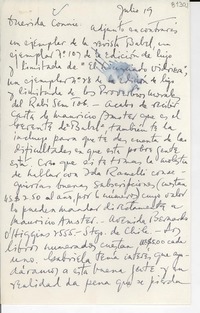 Julio 19
Querida Connie: adjunto encontrarás
un ejemplar de la revista Babel, un
ejemplar nº 107 de la edición de lujo
y limitada de "El
un ejemplar nº 78 de la edición de lujo
y limitada de los Proverbios morales
del Rabí Sem Tob - Acabo de recibir
carta de Mauricio Amster que es el
gerente de "Babel" también te la
incluyo para que te des cuenta de las
dificultades en que este pobre gente
está. Creo que si te tomas la molestia
de hablar con Ida Ramelli conse-
guirías buenas subscripciones (cuestan
US$ 2.50 al año, por 6 números) cuyo valor
lo pueden mandar directamente a
Mauricio Amster - Avenida Bernardo
O'Higgins 2555 - Stgo. de Chile - Los
libros numerados cuestan, US$ 5.00 cada
uno. Gabriela tenía interés que ayu-
dáramos a esta buena gente y en
realidad da pena que se pierda